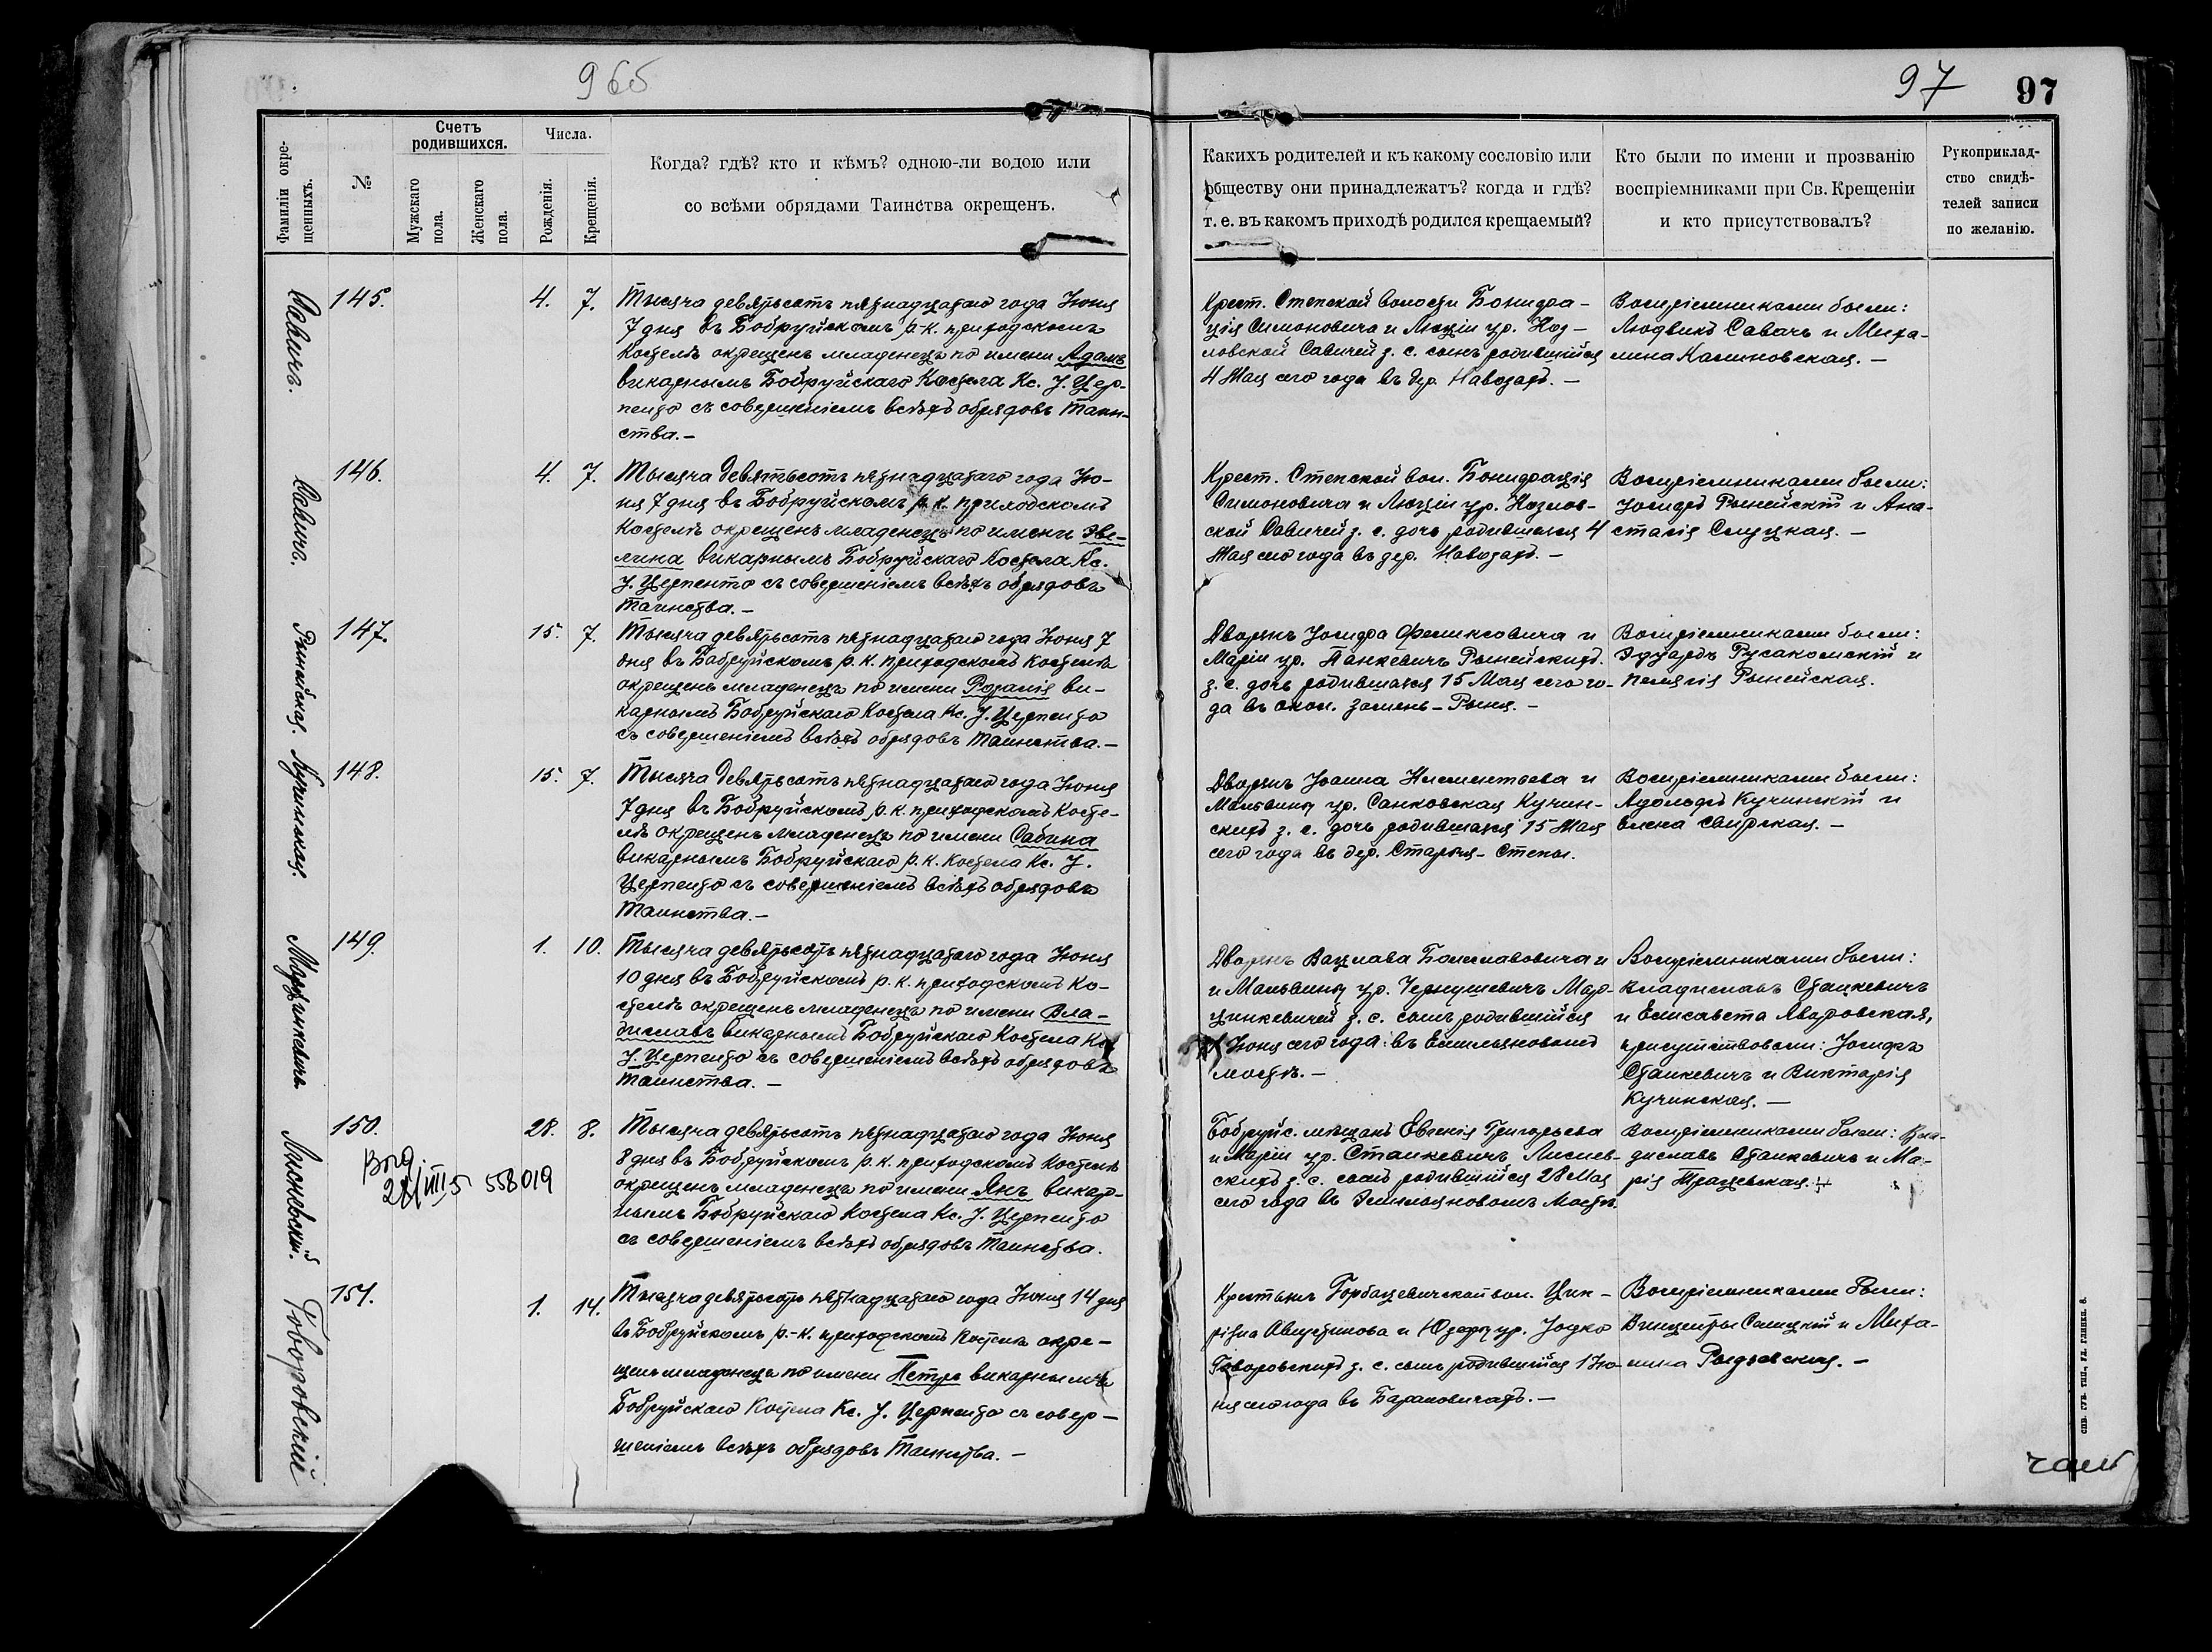 965
97
97
Фамиліи окре-
щенныхъ.
№
Счетъ
родившихся.
Мужскаго
пола.
Женскаго
пола.
Числа.
Рожденія.
Крещенія.
Когда? гдѣ? кто и кѣмъ? одною-ли водою или
со всѣми обрядами Таинства окрещенъ.
Какихъ родителей и къ какому сословію или
обществу они принадлежатъ? когда и гдѣ?
т. е. въ какомъ приходѣ родился крещаемый?
Кто были по имени и прозванію
воспріемниками при Св. Крещеніи
и кто присутствовалъ?
Рукоприклад-
ство свидѣ-
телей записи
по желанію.
Савичъ.
145.
4.
7.
Тысяча девятьсотъ пятнадцатаго года Іюня
7 дня въ Бобруйскомъ р.-к. приходскомъ
Костелѣ окрещенъ младенецъ по имени Адамъ
викарнымъ Бобруйскаго Костела Кс. І. Цер-
пенто съ совершеніемъ всѣхъ обрядовъ Таин-
ства.—
Крест. Степской волости Бонифа-
ція Симоновича и Люціи ур. Коз-
ловской Савичей з. с. сынъ родившійся
4 Мая сего года въ дер. Навозахъ.—
Воспріемниками были:
Людвикъ Савичъ и Миха-
лина Калиновская.—
Савичъ.
146.
4.
7.
Тысяча девятьсотъ пятнадцатаго года Ію-
ня 7 дня въ Бобруйскомъ р. к. приходскомъ
Костелѣ окрещенъ младенецъ по имени Эве-
лина викарнымъ Бобруйскаго Костела Кс.
І. Церпенто съ совершеніемъ всѣхъ обрядовъ
Таинства.—
Крест. Степской вол. Бонифація
Симоновича и Люціи ур. Козлов-
ской Савичей з. с. дочь родившаяся 4
Мая сего года въ дер. Навозахъ.—
Воспріемниками были:
Іосифъ Рынейскій и Ана-
стасія Слуцкая.—
Рынейская.
147.
15.
7.
Тысяча девятьсотъ пятнадцатаго года Іюня 7
дня въ Бобруйскомъ р. к. приходскомъ Костелѣ
окрещенъ младенецъ по имени Розалія ви-
карнымъ Бобруйскаго Костела Кс. І. Церпенто
съ совершеніемъ всѣхъ обрядовъ Таинства.—
Дворянъ Іосифа Феликсовича и
Маріи ур. Панкевичъ Рынейскихъ
з. с. дочь родившаяся 15 Мая сего го-
да въ окол. Замень-Рыня.—
Воспріемниками были:
Эдуардъ и
Пелягія Рынейская.
Кучинская.
148.
15.
7.
Тысяча девятьсотъ пятнадцатаго года Іюня
7 дня въ Бобруйскомъ р. к. приходскомъ Косте-
лѣ окрещенъ младенецъ по имени Сабина
викарнымъ Бобруйскаго р. к. Костела Кс. І.
Церпенто съ совершеніемъ всѣхъ обрядовъ
Таинства.—
Дворянъ Іоанна Климентьева и
Мальвины ур. Санковская Кучин-
скихъ з. с. дочь родившаяся 15 Мая
сего года въ дер. Старыя-Степы.
Воспріемниками были:
Адольфъ Кучинскій и
Елена Свирская.—
Марцинкевичъ
149.
1.
10.
Тысяча девятьсотъ пятнадцатаго года Іюня
10 дня въ Бобруйскомъ р. к. приходскомъ Ко-
стелѣ окрещенъ младенецъ по имени Вла-
диславъ викарнымъ Бобруйскаго Костела Кс.
І. Церпенто съ совершеніемъ всѣхъ обрядовъ
Таинства.—
Дворянъ Вацлава Болеславовича и
и Мальвины ур. Чернушевичъ Мар-
цинкевичей з. с. сынъ родившійся
1 Іюня сего года въ Емельяновомъ
мостѣ.—
Воспріемниками были:
Владиславъ Станкевичъ
и Елисавета Яворовская,
присутствовали: Іосифъ
Станкевичъ и Викторія
Кучинская.—
Лисовскій.
150.
28.
8.
558019
Тысяча девятьсотъ пятнадцатаго года Іюня
8 дня въ Бобруйскомъ р. к. приходскомъ Костелѣ
окрещенъ младенецъ по имени Янъ викар-
нымъ Бобруйскаго Костела Кс. І. Церпенто
съ совершеніемъ всѣхъ обрядовъ Таинства.
Бобруйс. мѣщанъ Евгенія Григорьева
и Маріи ур. Станкевичъ Лисов-
скихъ з. с. сынъ родившійся 28 Мая
сего года въ Эмильяновомъ Мостѣ.
Воспріемниками были: Вла-
диславъ Станкевичъ и Ма-
рія
Говоровскій
151.
1.
14.
Тысяча девятьсотъ пятнадцатаго года Іюня 14 дня
въ Бобруйскомъ р.-к. приходскомъ Костелѣ окре-
щенъ младенецъ по имени Петръ викарнымъ
Бобруйскаго Костела Кс. І. Церпенто съ совер-
шеніемъ всѣхъ обрядовъ Таинства.—
Крестьянъ Горбацевичской вол. Цип-
ріяна Августинова и Юзефы ур. Іодко
Говоровскихъ з. с. сынъ родившійся 1 Ію-
ня сего года въ Барановичахъ.—
Воспріемниками были:
Винцентъ и Миха-
лина
СПБ. ГУБ. ТИП., УЛ. ГЛИНКИ, 8.